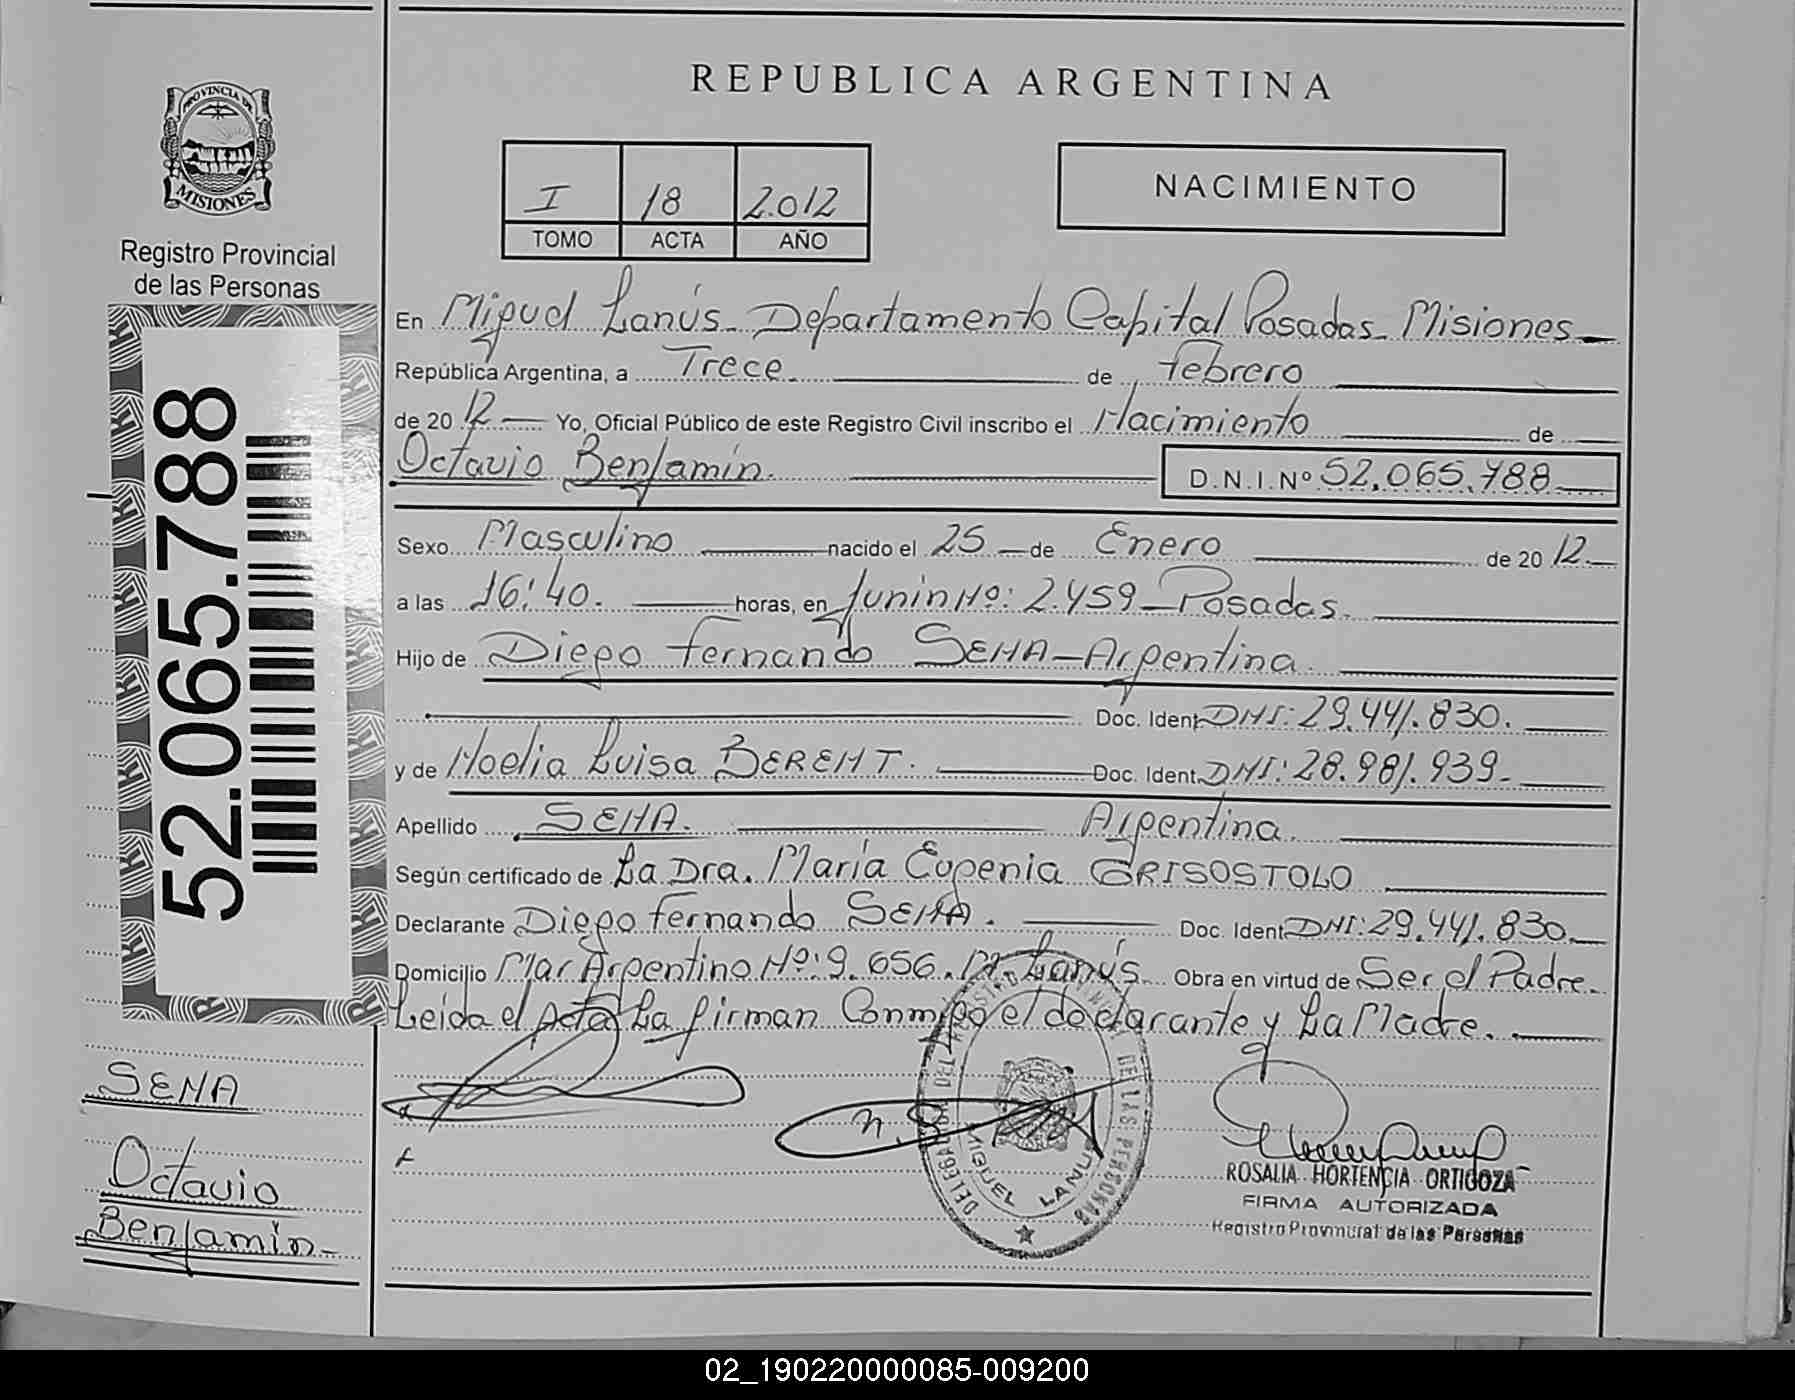 REPUBLICA ARGENTINA
PROVINCIA DE
MISIONES
Registro Provincial
de las Personas
I 18 2.012
TOMO ACTA AÑO
NACIMIENTO
52.065.788
En Miguel Lanús - Departamento Capital Posadas - Misiones
República Argentina, a Trece de febrero
de 20 12 Yo, Oficial Público de este Registro Civil inscribo el Nacimiento de
Octavio Benjamín. D.N.I.Nº 52.065.788
Sexo Masculino nacido el 25 de Enero de 20 12
a las 16:40. horas, en Junin Nº: 2.459 - Posadas.
Hijo de Diego Fernando SENA - Argentina.
Doc. Ident. DNI: 29.441.830.
y de Noelia Luisa BERENT. Doc. Ident. DNI: 28.981.939.
Apellido SENA. Argentina.
Según certificado de La Dra. María Eugenia GRISOSTOLO
Declarante Diego Fernando SENA. Doc. Ident. DNI: 29.441.830.
Domicilio Mar Argentino Nº: 9.656. M. Lanús. Obra en virtud de Ser el Padre.
Leída el Acta La firman Conmigo el declarante y La Madre.
SENA
Octavio
Benjamín
DE LAS PERSONAS
MIGUEL LANUS
ROSALIA HORTENCIA ORTIGOZA
FIRMA AUTORIZADA
Registro Provincial de las Personas
02_190220000085-009200